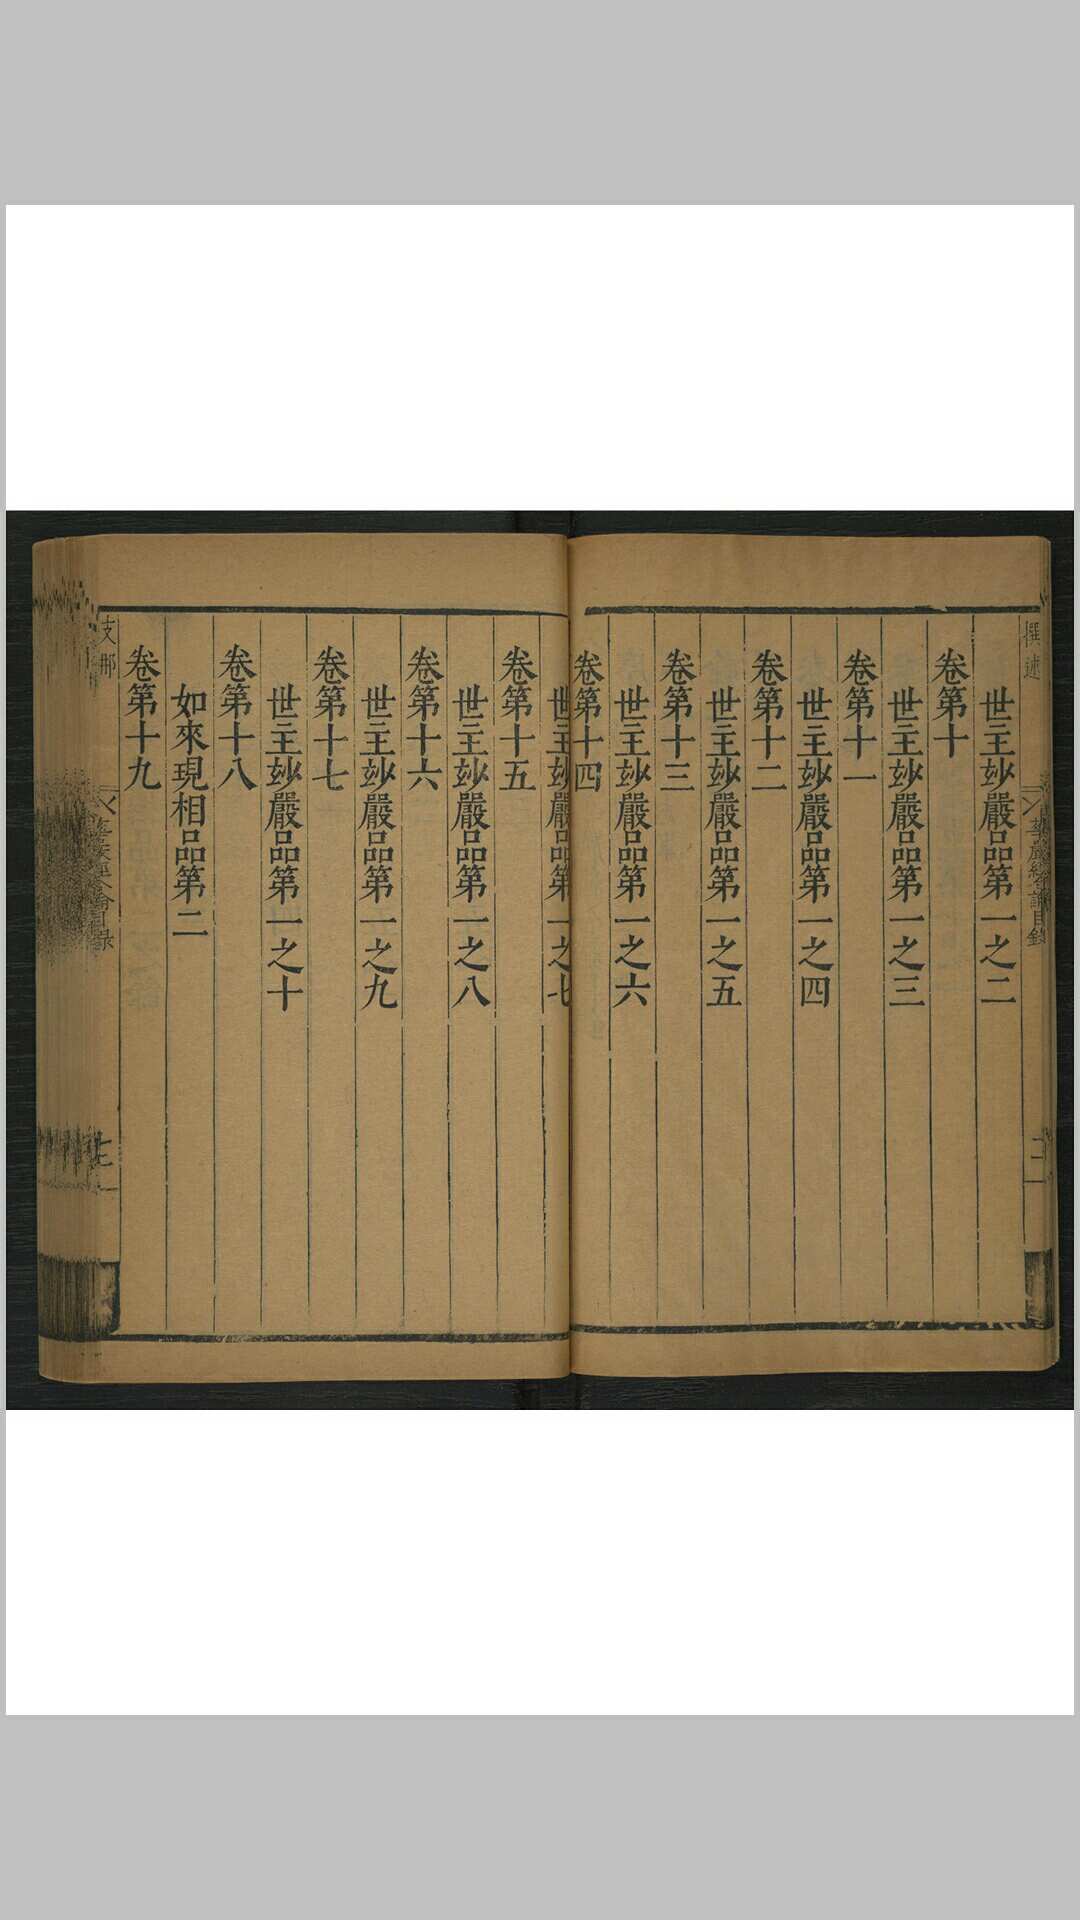 撰述
華嚴經合論目錄
世主妙嚴品第一之二
卷第十
世主妙嚴品第一之三
卷第十一
世主妙嚴品第一之四
卷第十二
世主妙嚴品第一之五
卷第十三
世主妙嚴品第一之六
卷第十四
世主妙嚴品第一之七
卷第十五
世主妙嚴品第一之八
卷第十六
世主妙嚴品第一之九
卷第十七
世主妙嚴品第一之十
卷第十八
如來現相品第二
卷第十九
支那